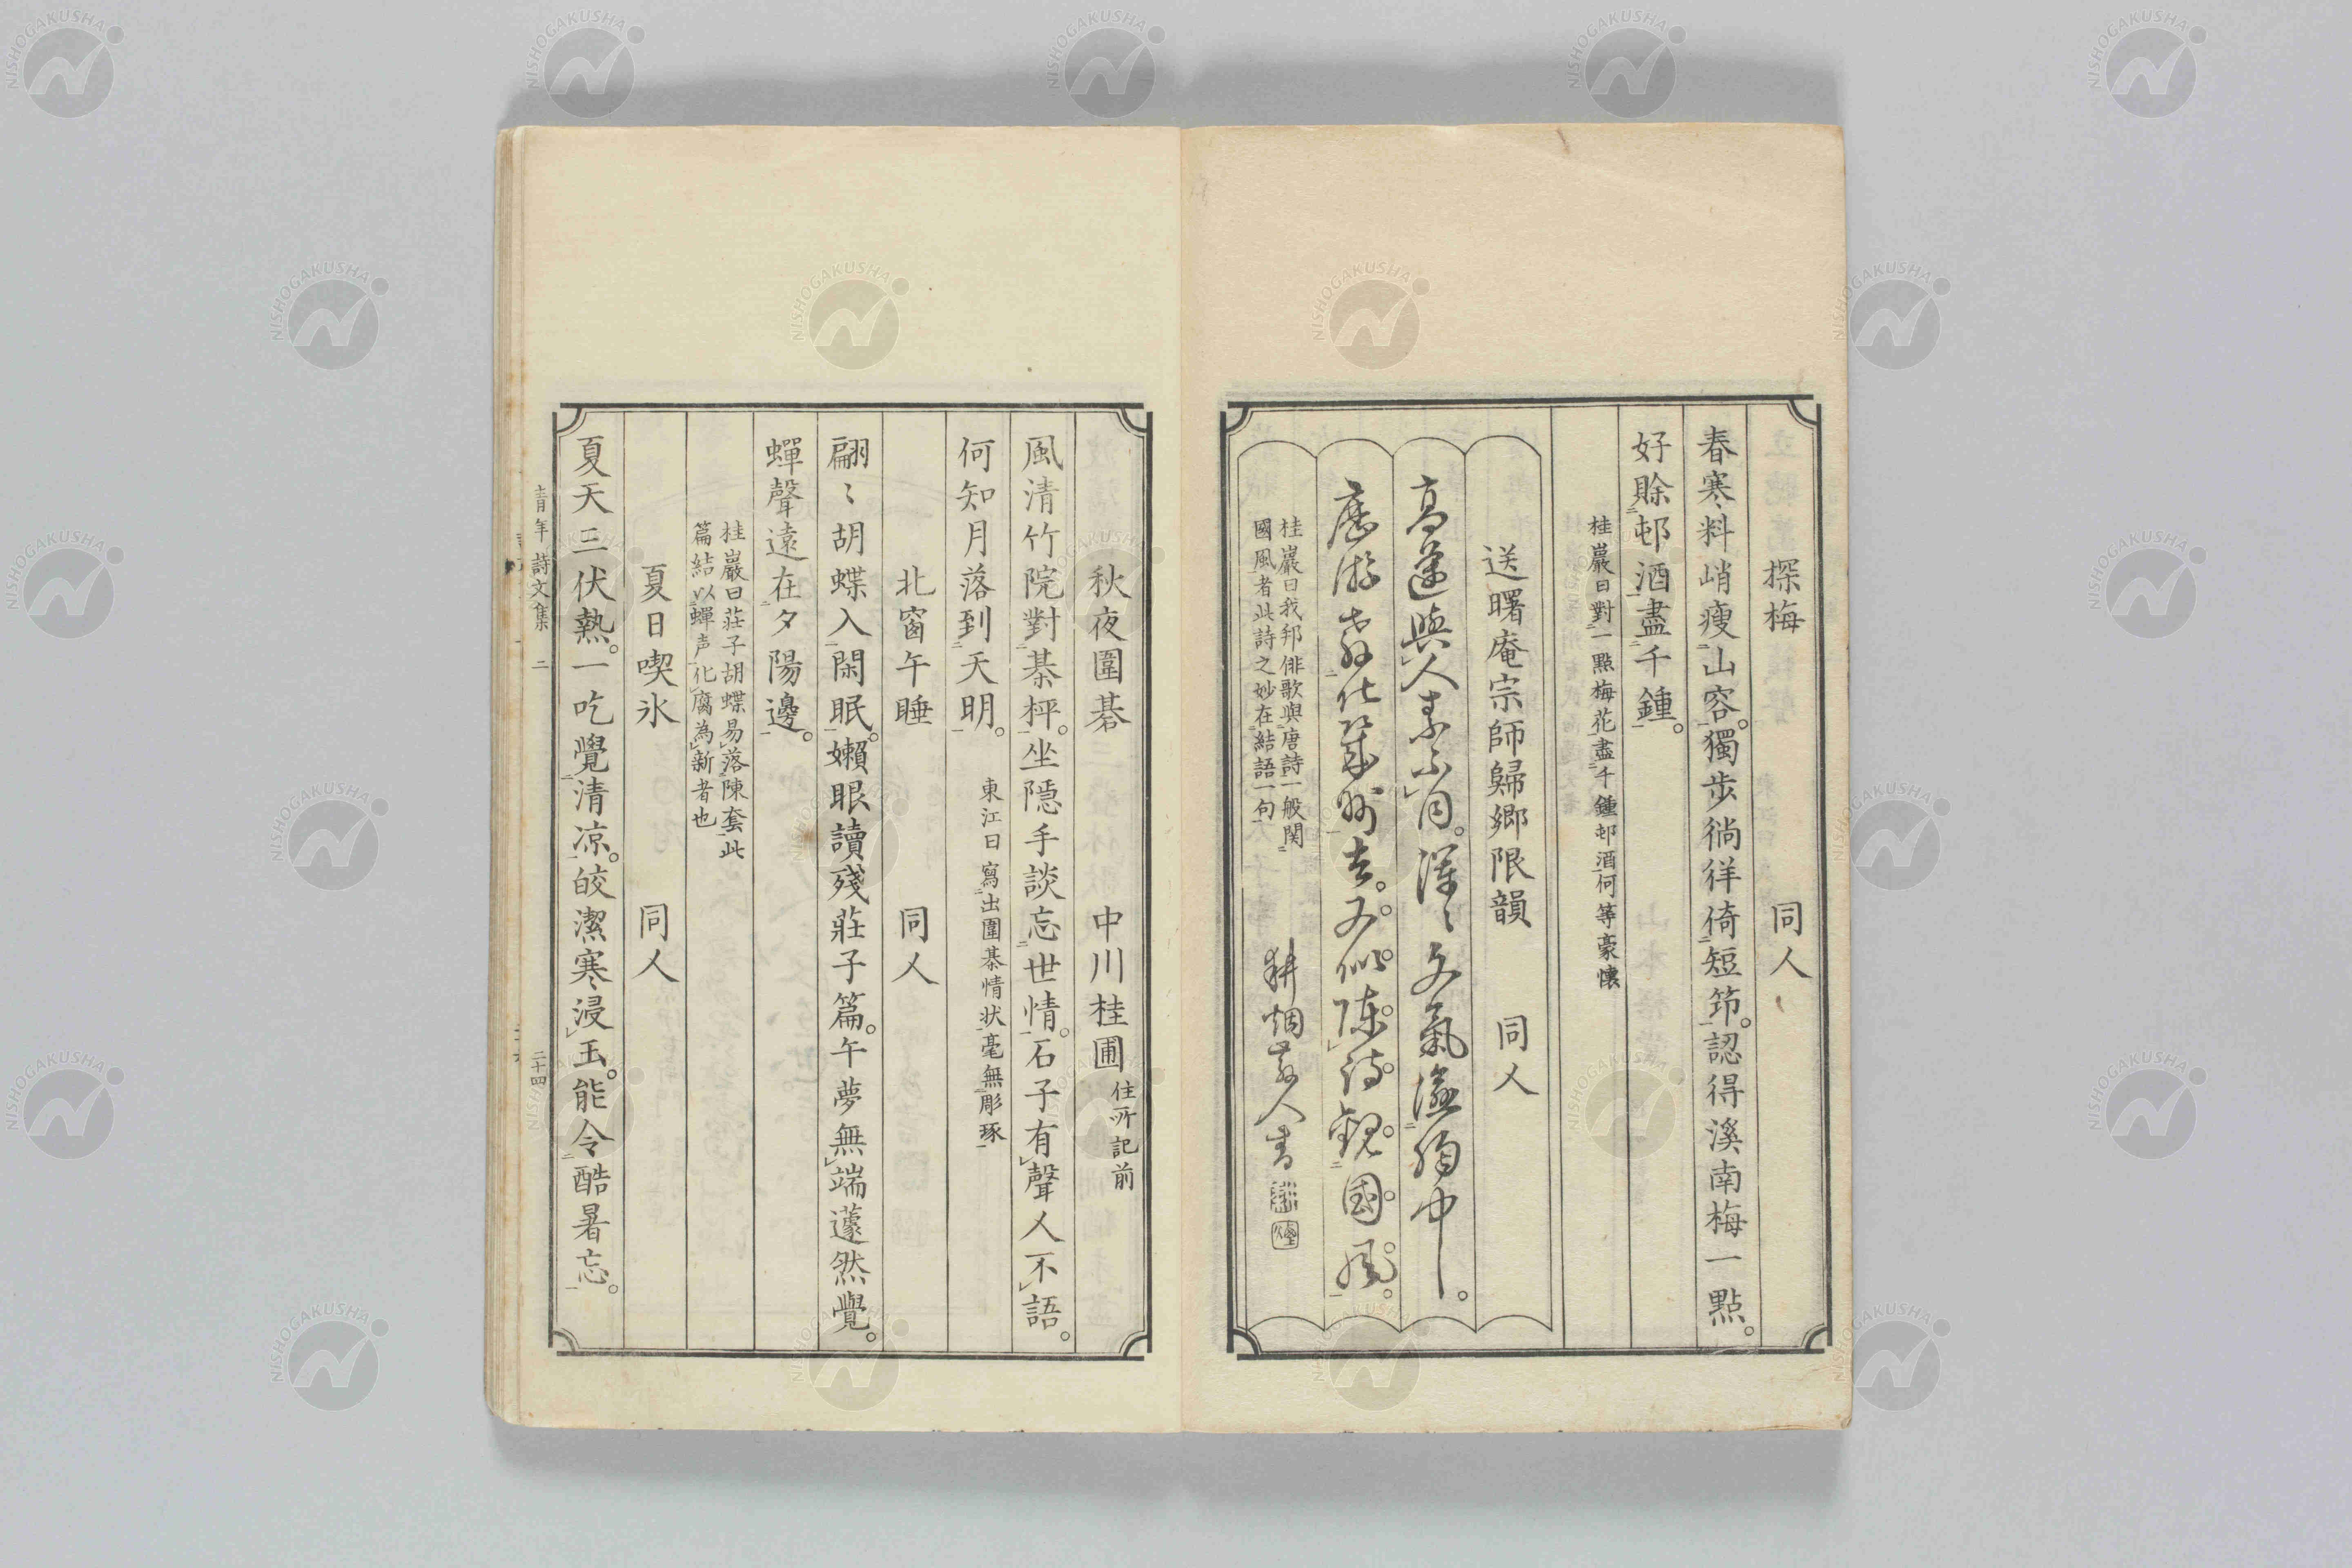 探梅　同人
春寒料峭瘦山容。獨步徜徉倚短筇。認得溪南梅一點。
好賒邨酒盡千鍾。
桂巖曰對一點梅花盡千鍾邨酒何等豪懷
送曙庵宗師歸鄉限韻　同人
高蓬與人素不同。渾〻文氣溢胸中。
歷游去。又似陳詩觀國風。
桂巖曰我邦俳歌與唐詩一般関
國風者此詩之妙在結語一句
秋夜圍碁　中川桂圃　住所記前
風清竹院對棊枰。坐隱手談忘世情。石子有聲人不語。
何知月落到天明。
東江曰寫出圍棊情状毫無彫琢
北窗午睡　同人
翩〻胡蝶入閑眠。嬾眼讀殘莊子篇。午夢無端蘧然覺。
蟬聲遠在夕陽邊。
桂巖曰莊子胡蝶易落陳套此
篇結以蟬声化腐為新者也
夏日喫氷　同人
夏天三伏熱。一吃覺清凉。皎潔寒浸玉。能令酷暑忘。
青年詩文集　二　二十四
NISHOGAKUSHA